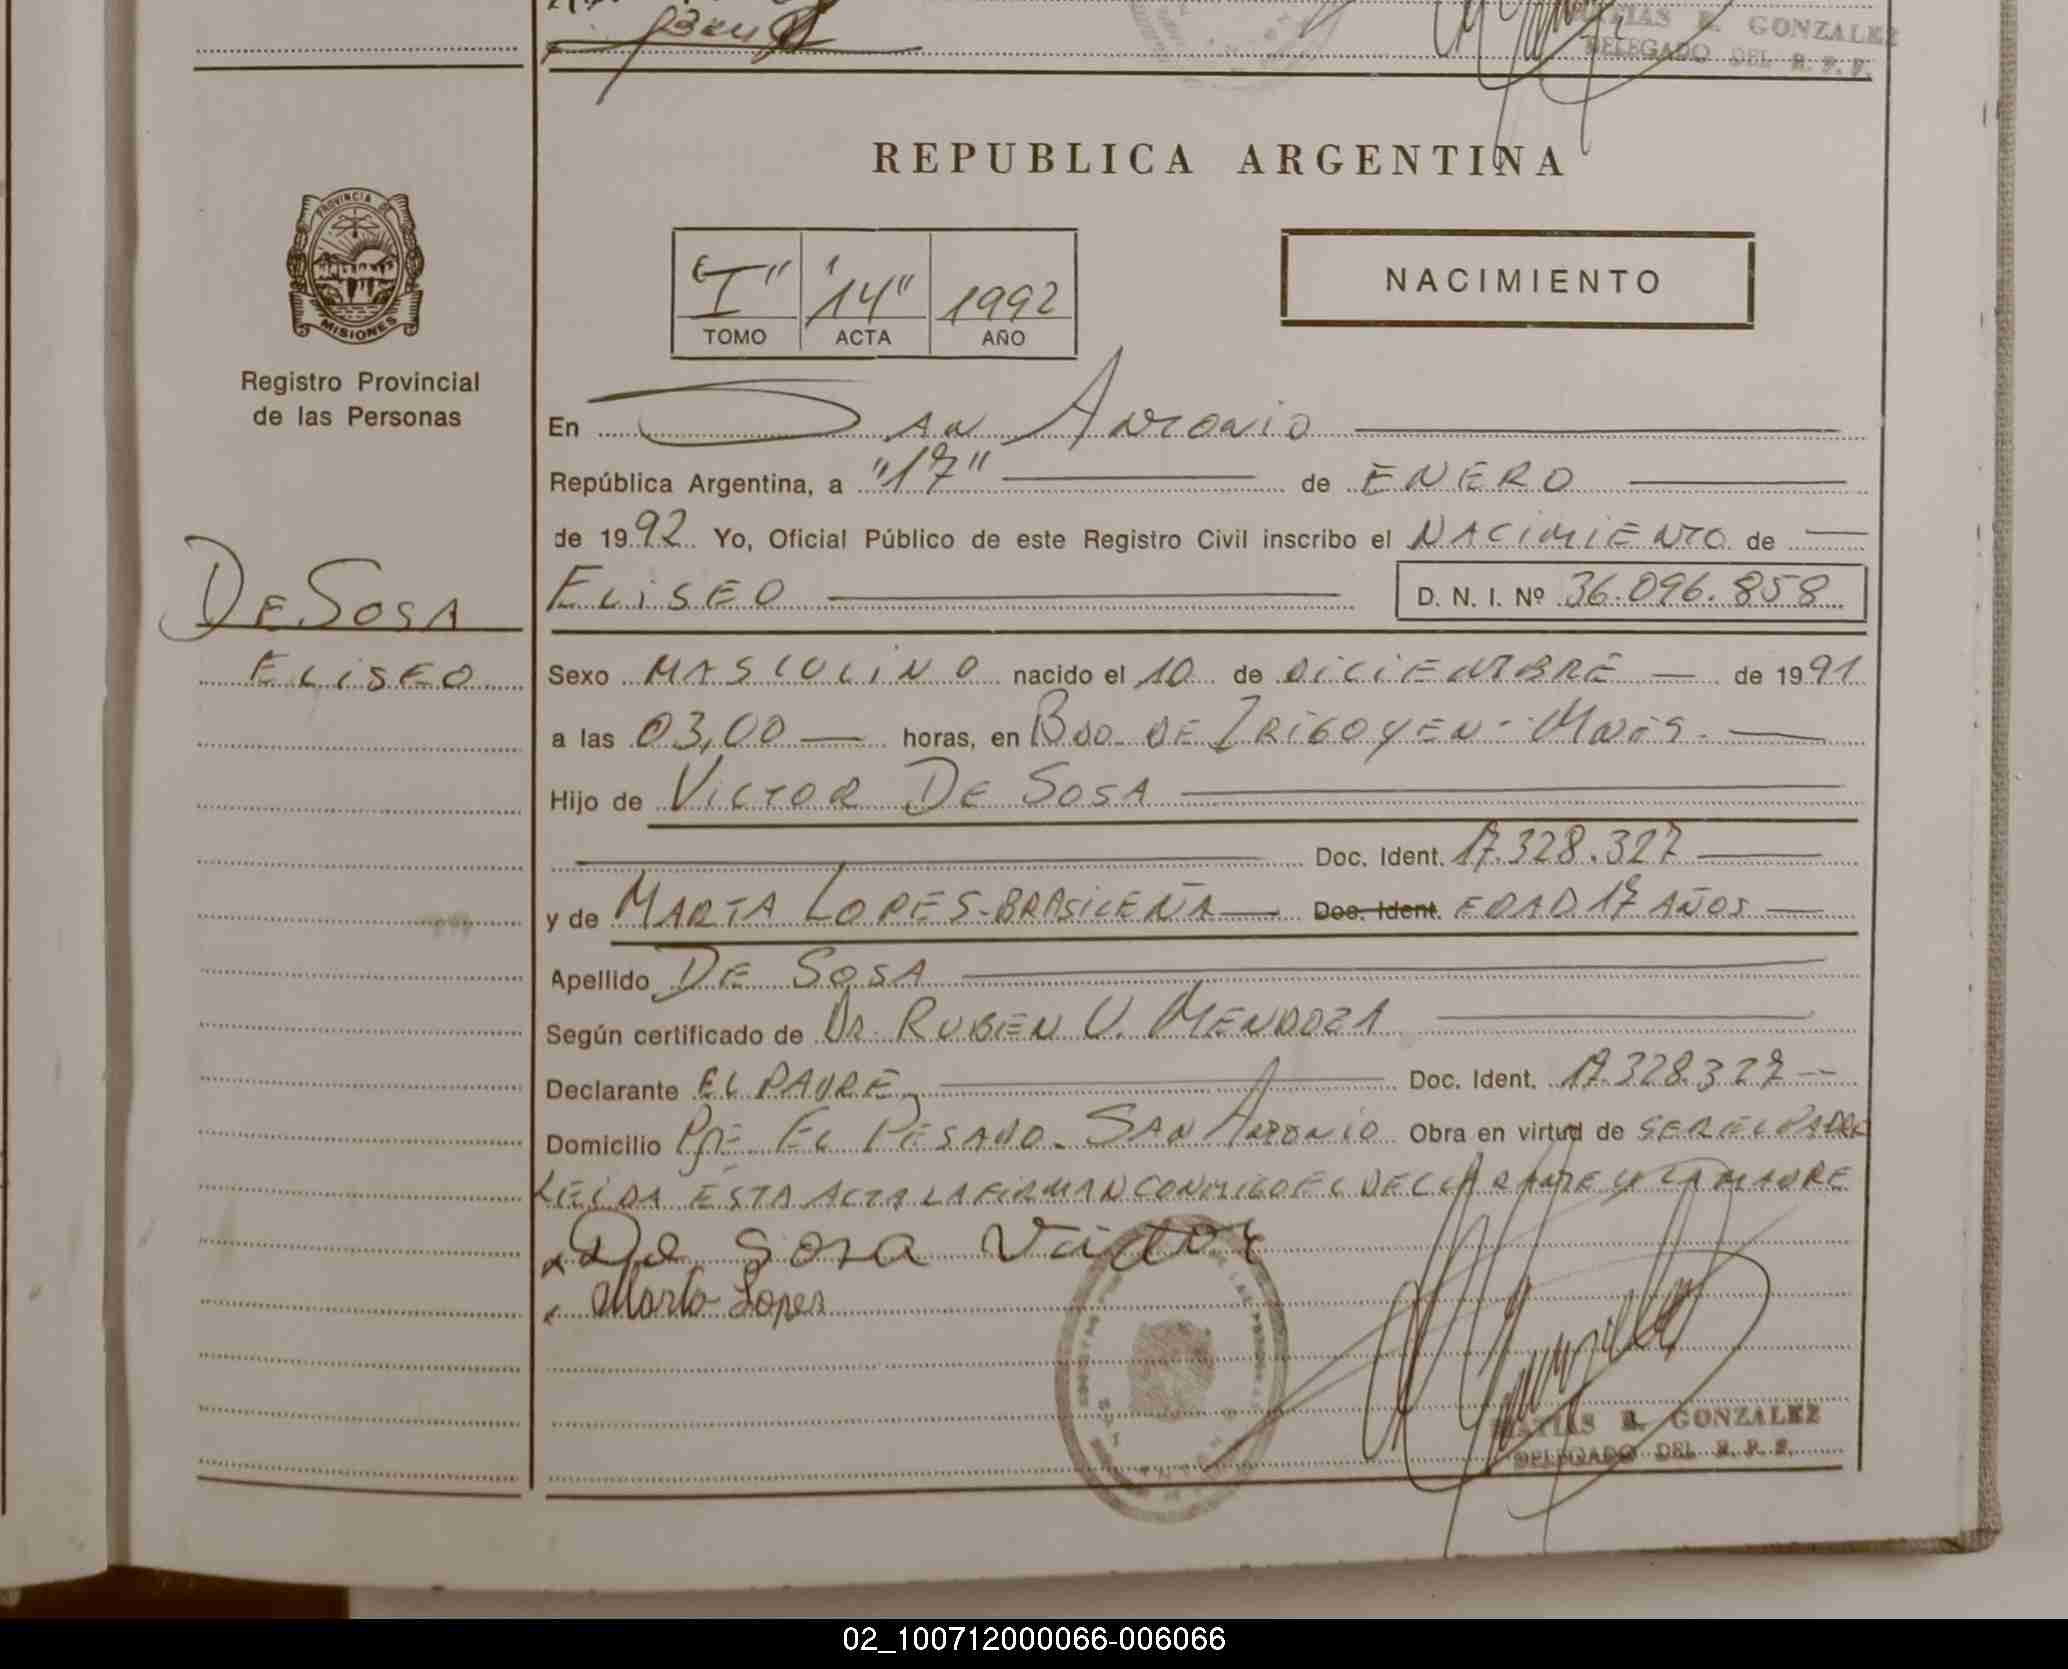 MATIAS E. GONZALEZ
DELEGADO DEL R. P. P.
REPUBLICA ARGENTINA
PROVINCIA DE
MISIONES
Registro Provincial
de las Personas
"I" "14" 1992
TOMO ACTA AÑO
NACIMIENTO
En SAN ANTONIO
República Argentina, a "17" de ENERO
de 1992 Yo, Oficial Público de este Registro Civil inscribo el NACIMIENTO de
ELISEO D. N. I. Nº 36.096.858
DE SOSA
ELISEO
Sexo MASCULINO nacido el 10 de DICIEMBRE de 1991
a las 03,00 horas, en BDO. DE IRIGOYEN - MNES.
Hijo de VICTOR DE SOSA
Doc. Ident. 17.328.327
y de MARTA LOPES-BRASILEÑA Doc. Ident. EDAD 17 AÑOS
Apellido DE SOSA
Según certificado de DR. RUBEN V. MENDOZA
Declarante EL PADRE Doc. Ident. 17.328.327
Domicilio PJE EL PESADO - SAN ANTONIO Obra en virtud de SER EL PADRE
LEIDA ESTA ACTA LA FIRMAN CONMIGO EL DECLARANTE Y LA MADRE
De Sosa Victor
Marta Lopes
MATIAS E. GONZALEZ
DELEGADO DEL R. P. P.
02_100712000066-006066